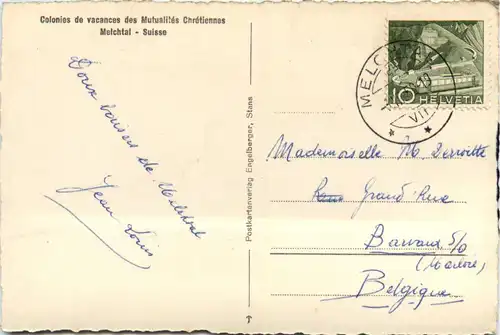 Colonies de vacances des Mutualités Chrétiennes
Melchtal - Suisse
Doux baisers de Melchtal
Jean Louis
Postkartenverlag Engelberger, Stans
MELCHTAL
VII
10 HELVETIA
Mademoiselle M.
Grand'Rue
S/O
Belgique